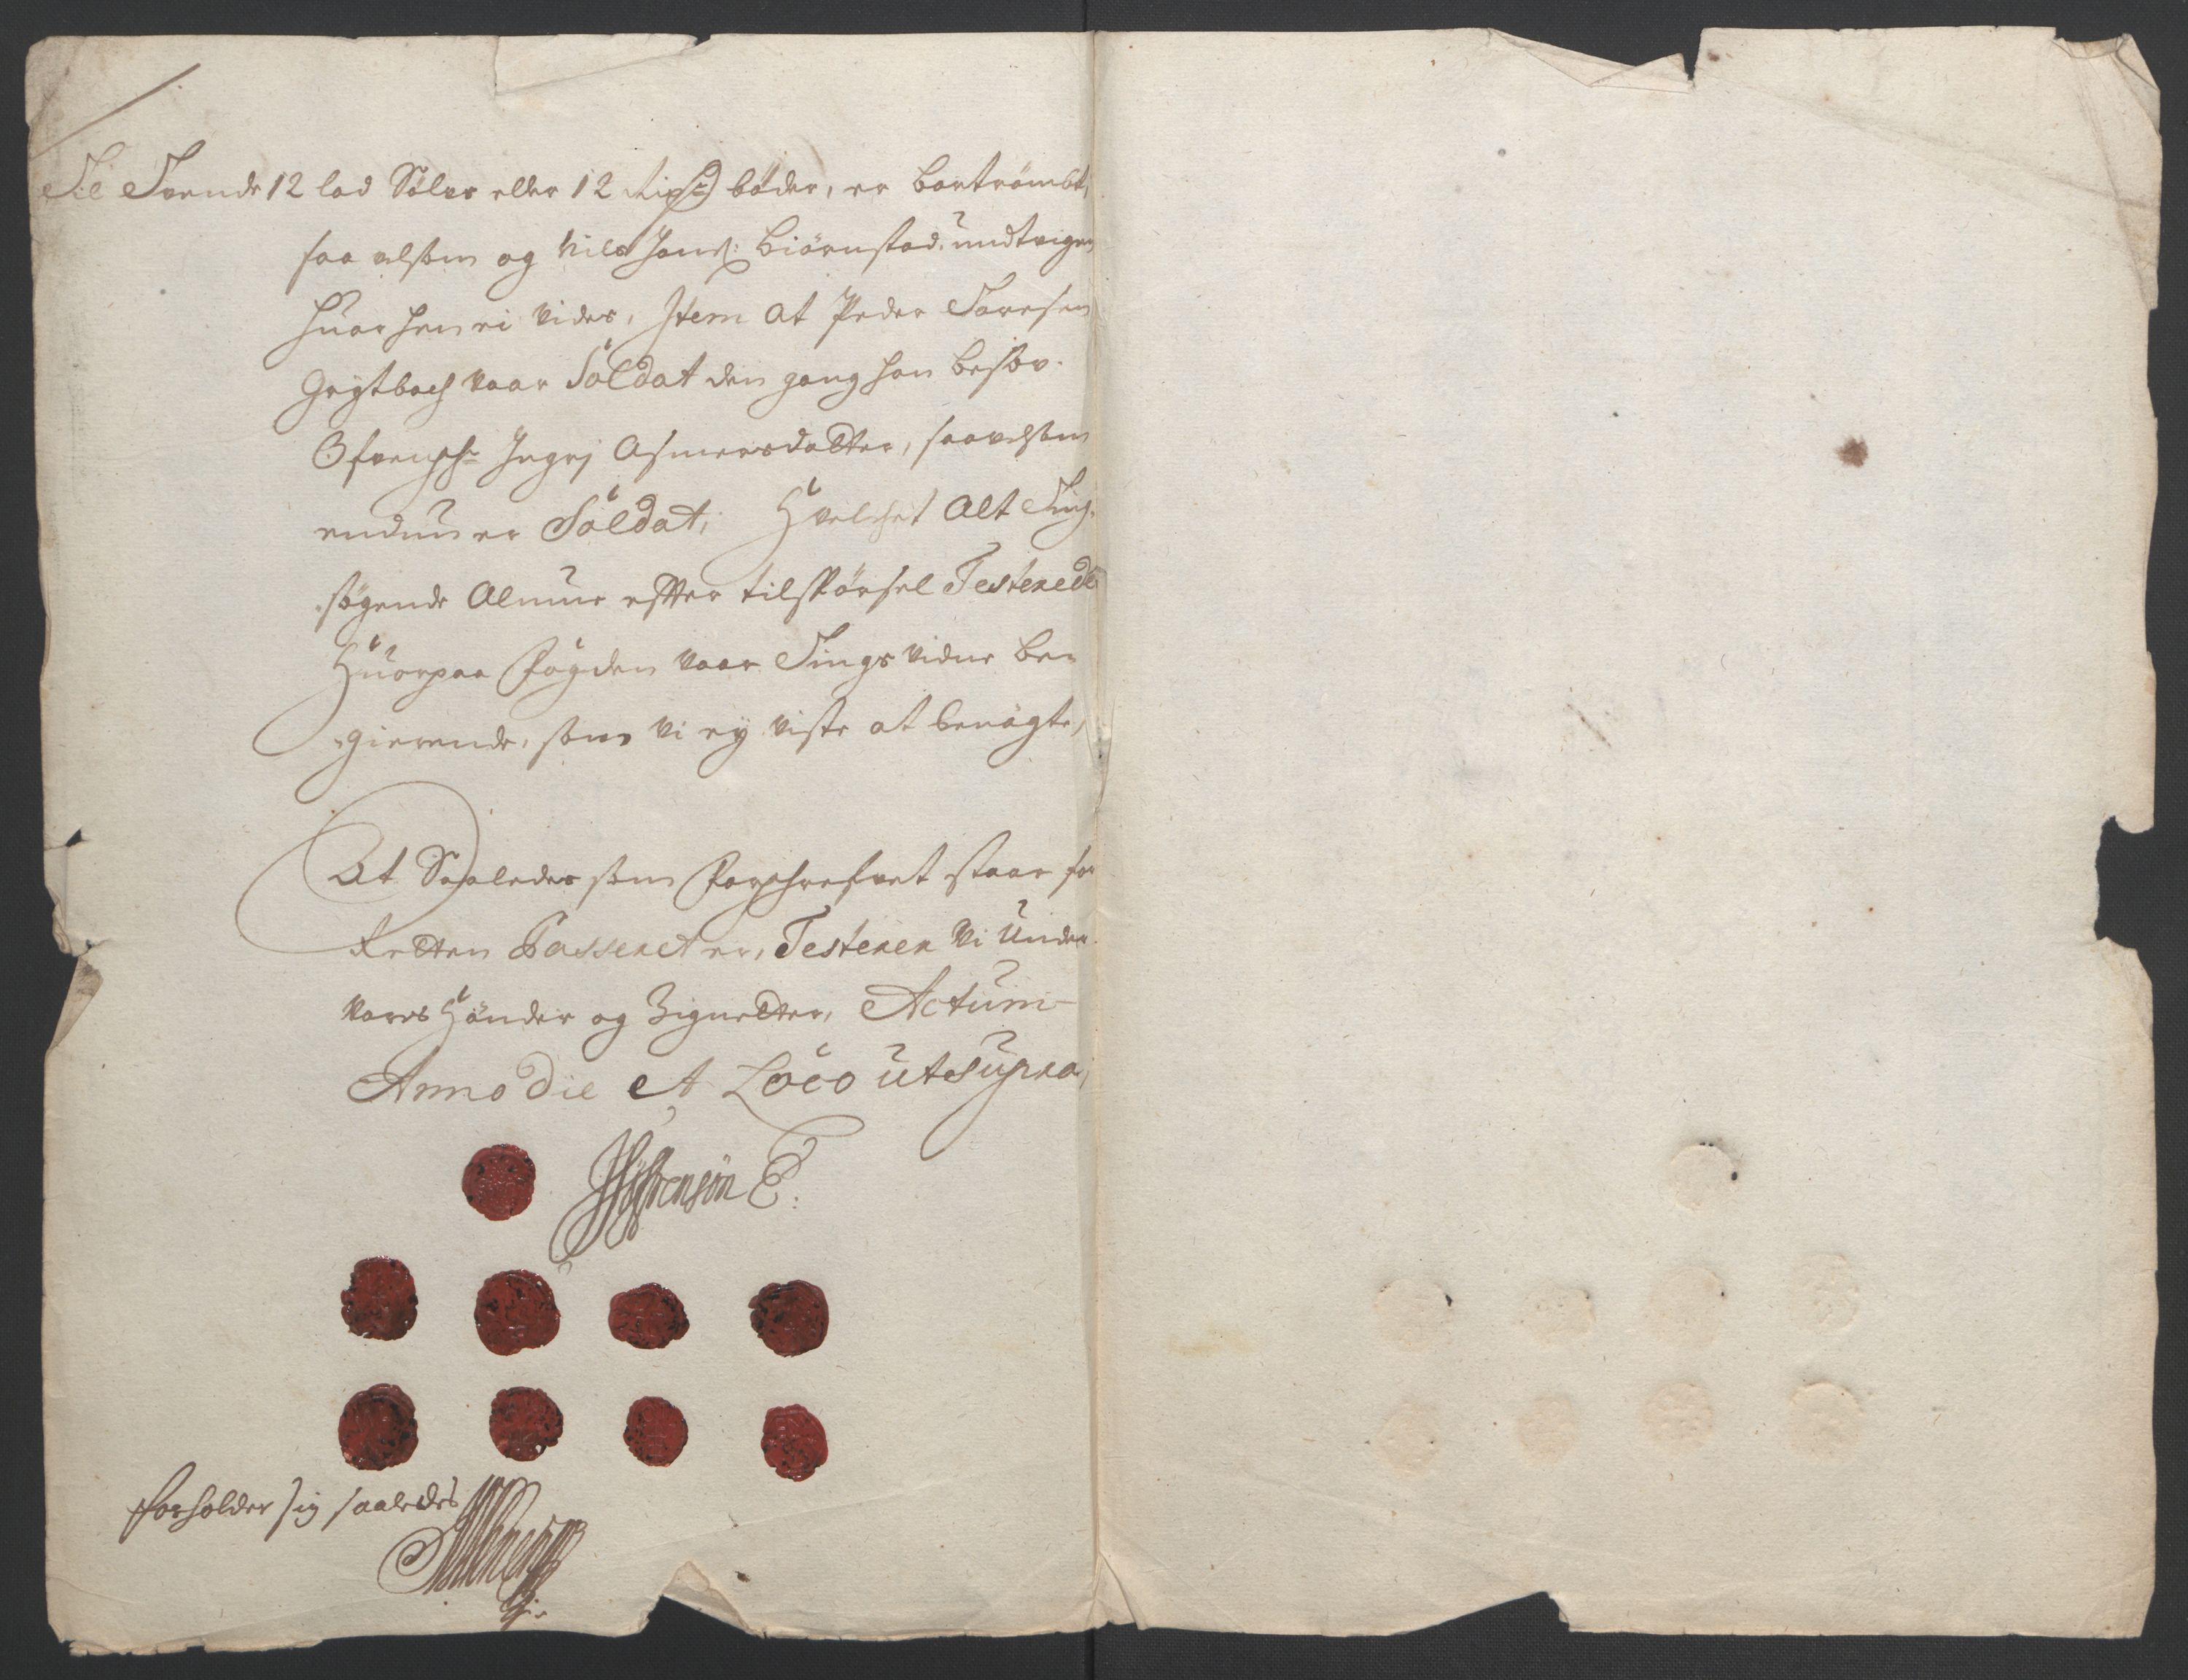 Til Trende 12 lod Sölver eller 12 Rixd bøder, er bortrömbt,
saa velsom og Nils Jons: Biörnstad, undtvigen
huor hen ei vides, Item at Peder Toresen
Grytbach vaar Soldat den gang han besov
Ofvensch: Ingrj Asmersdatter, saavelsom
endnu er Soldat, Hvelchet Alt Ting
søgende Almue efter tilspörsel Testerede
Huorpaa Fogden vaar Tingsvidne be-
gierende, som vi ey viste at benägte,
At Saaledes som forschrefvet staar for
Retten Passeret er, Testerer Vi Under
vores Händer og Zignetter, Actum
Anno die et Loco ut supra,
forholder sig saaledes